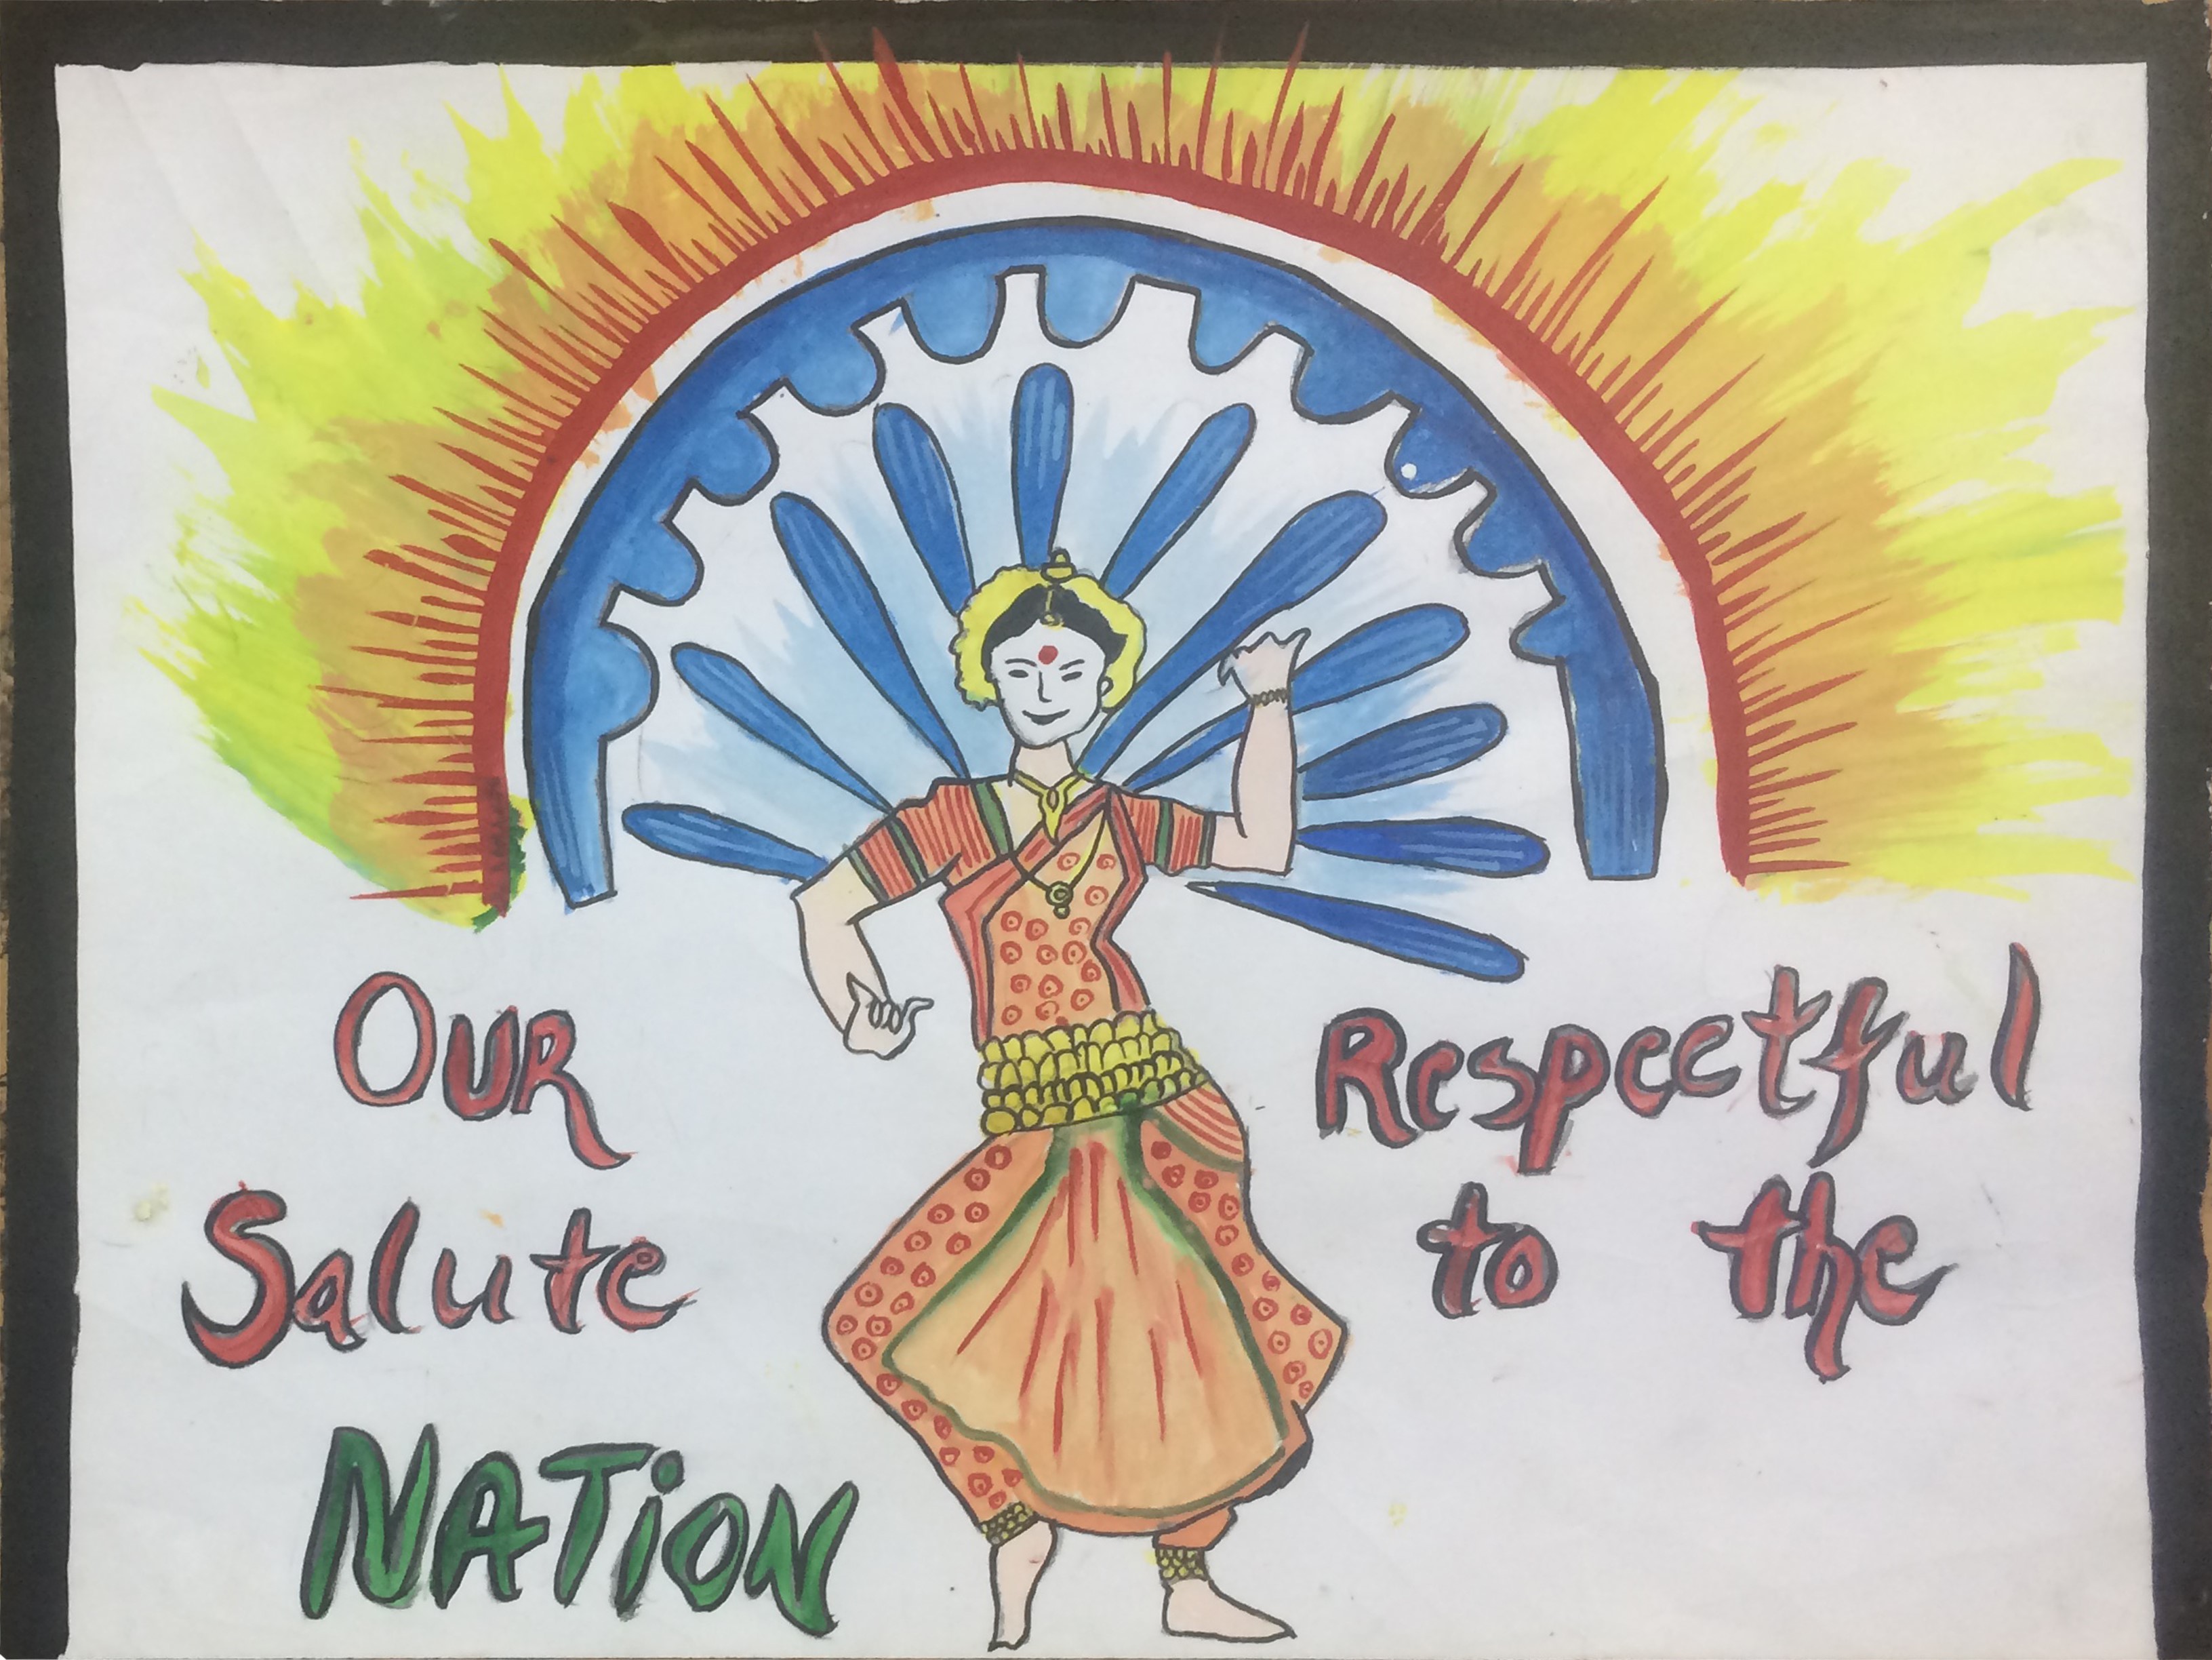 Our Respectful
Salute to the
NATiON